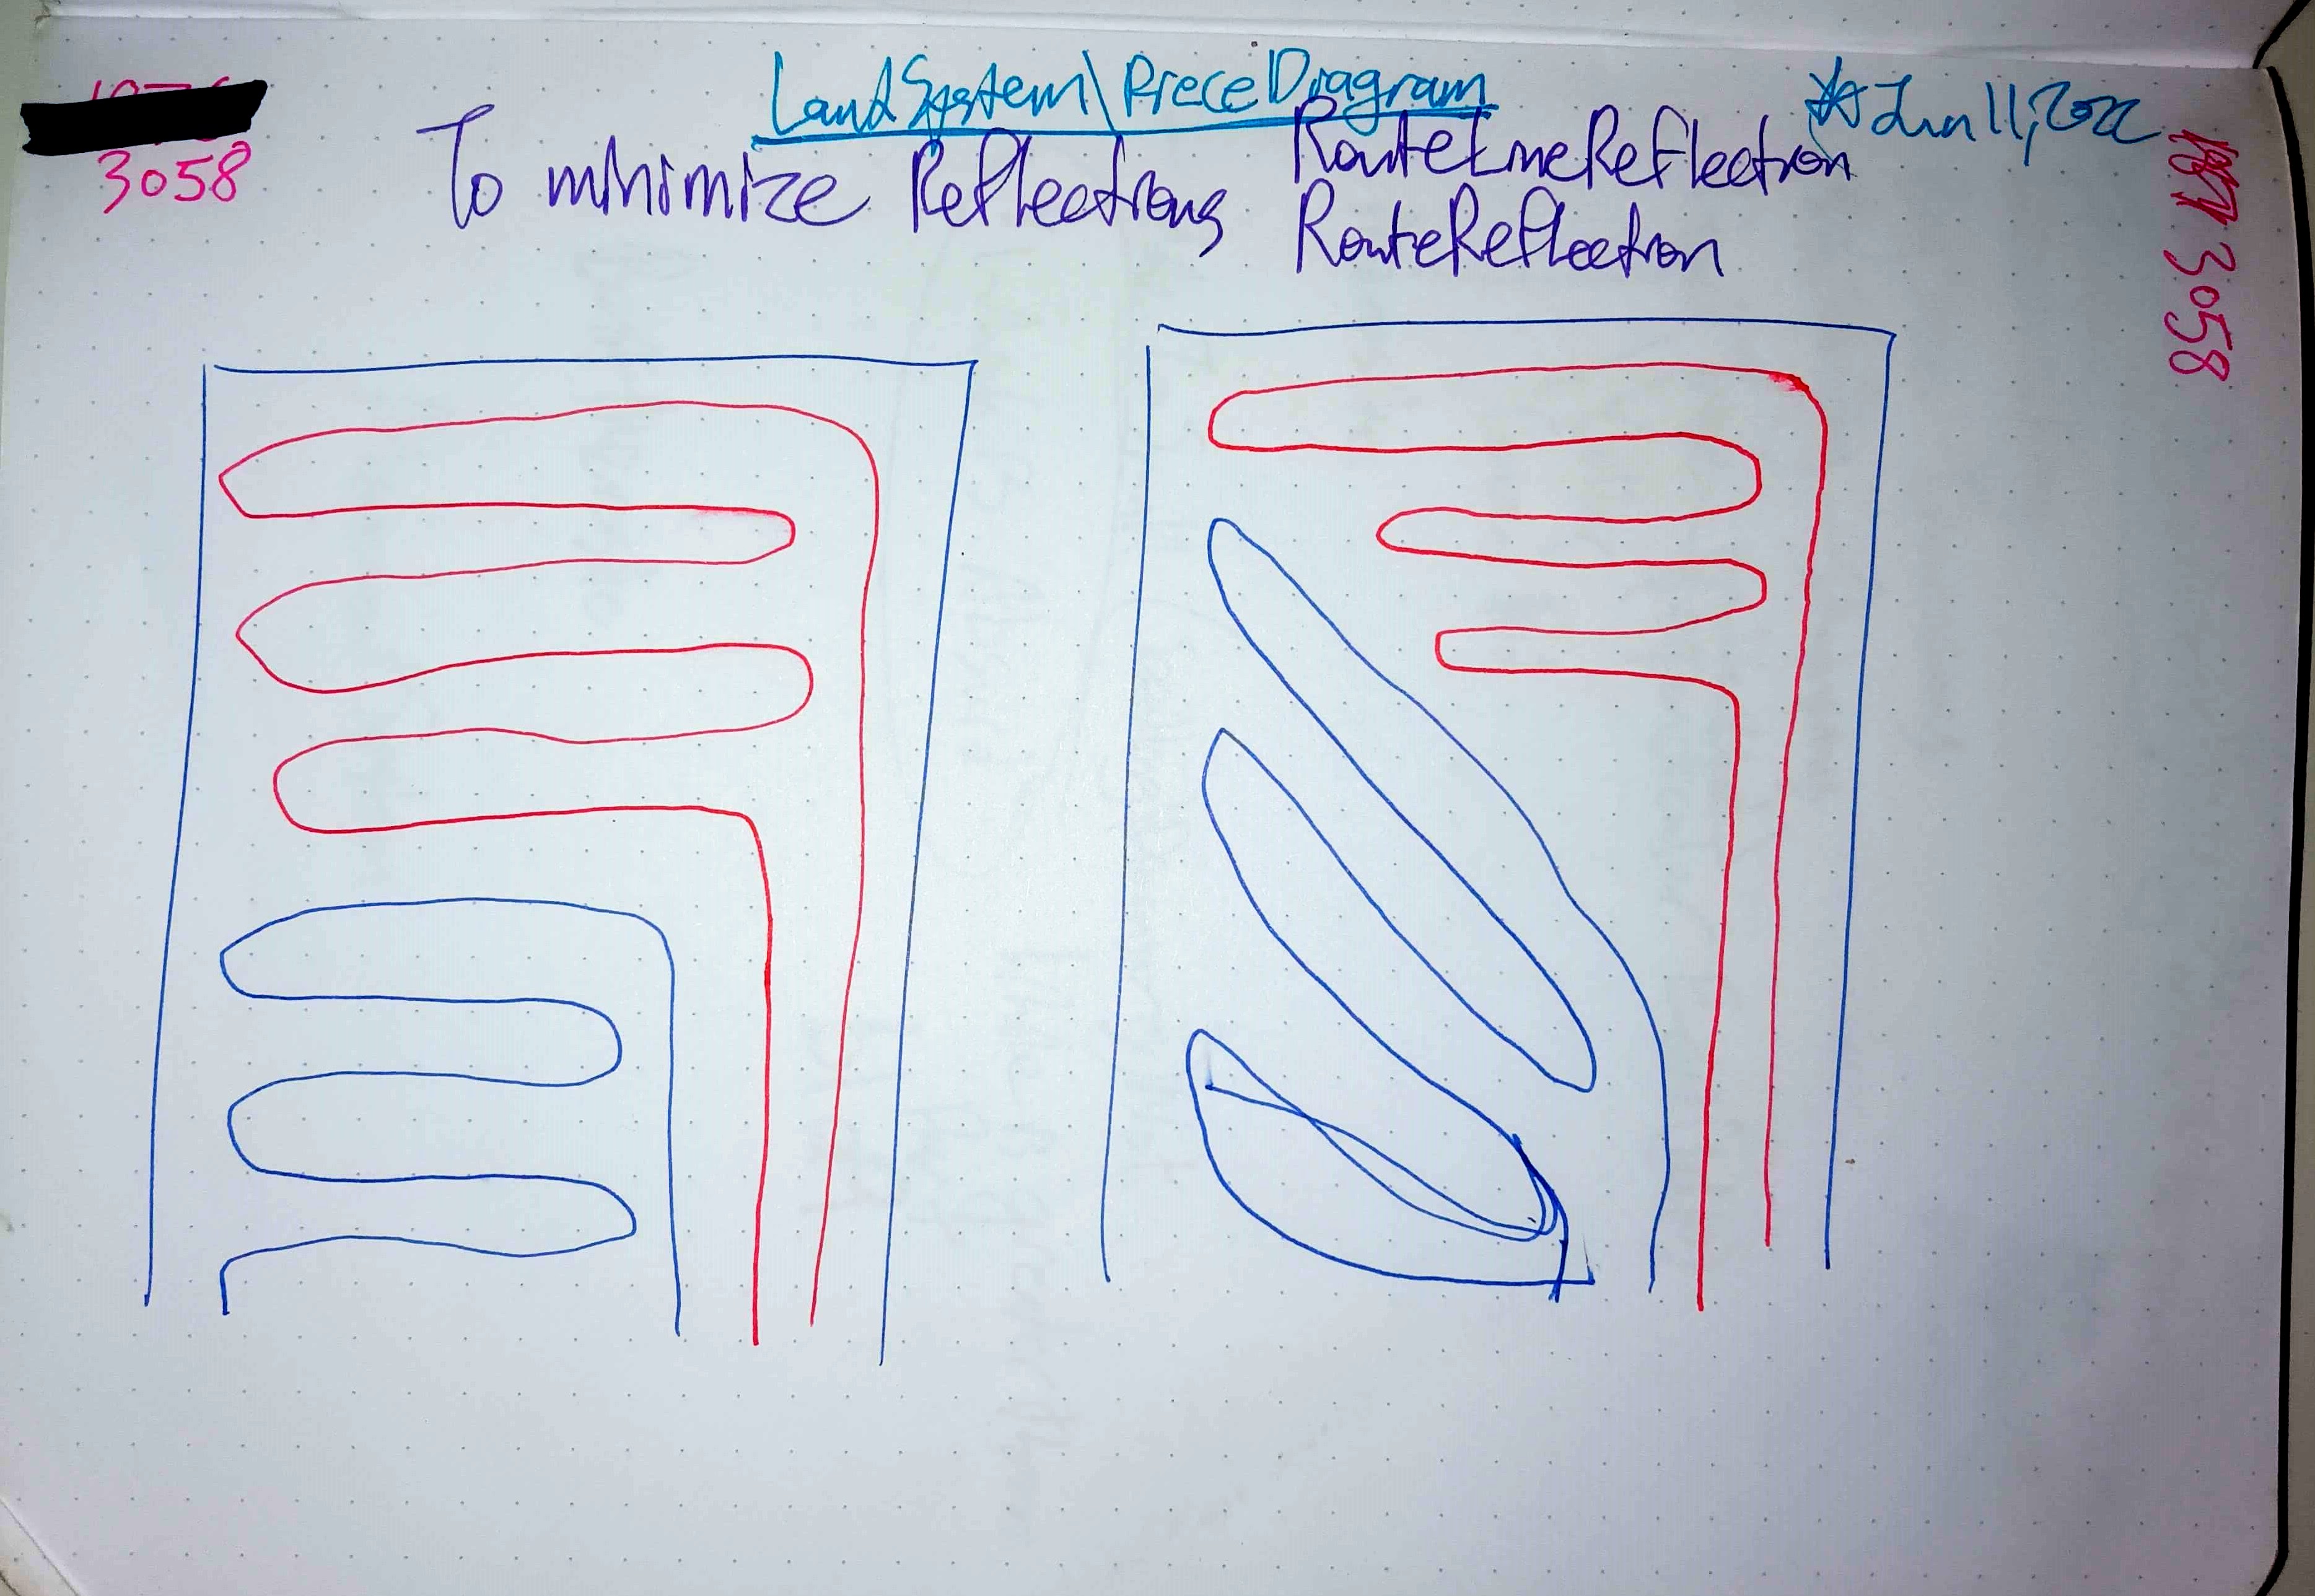 LandSystem\PieceDiagram
Jun 11, 2022
3058
To minimize Reflections
RouteLineReflection
RouteReflection
3058